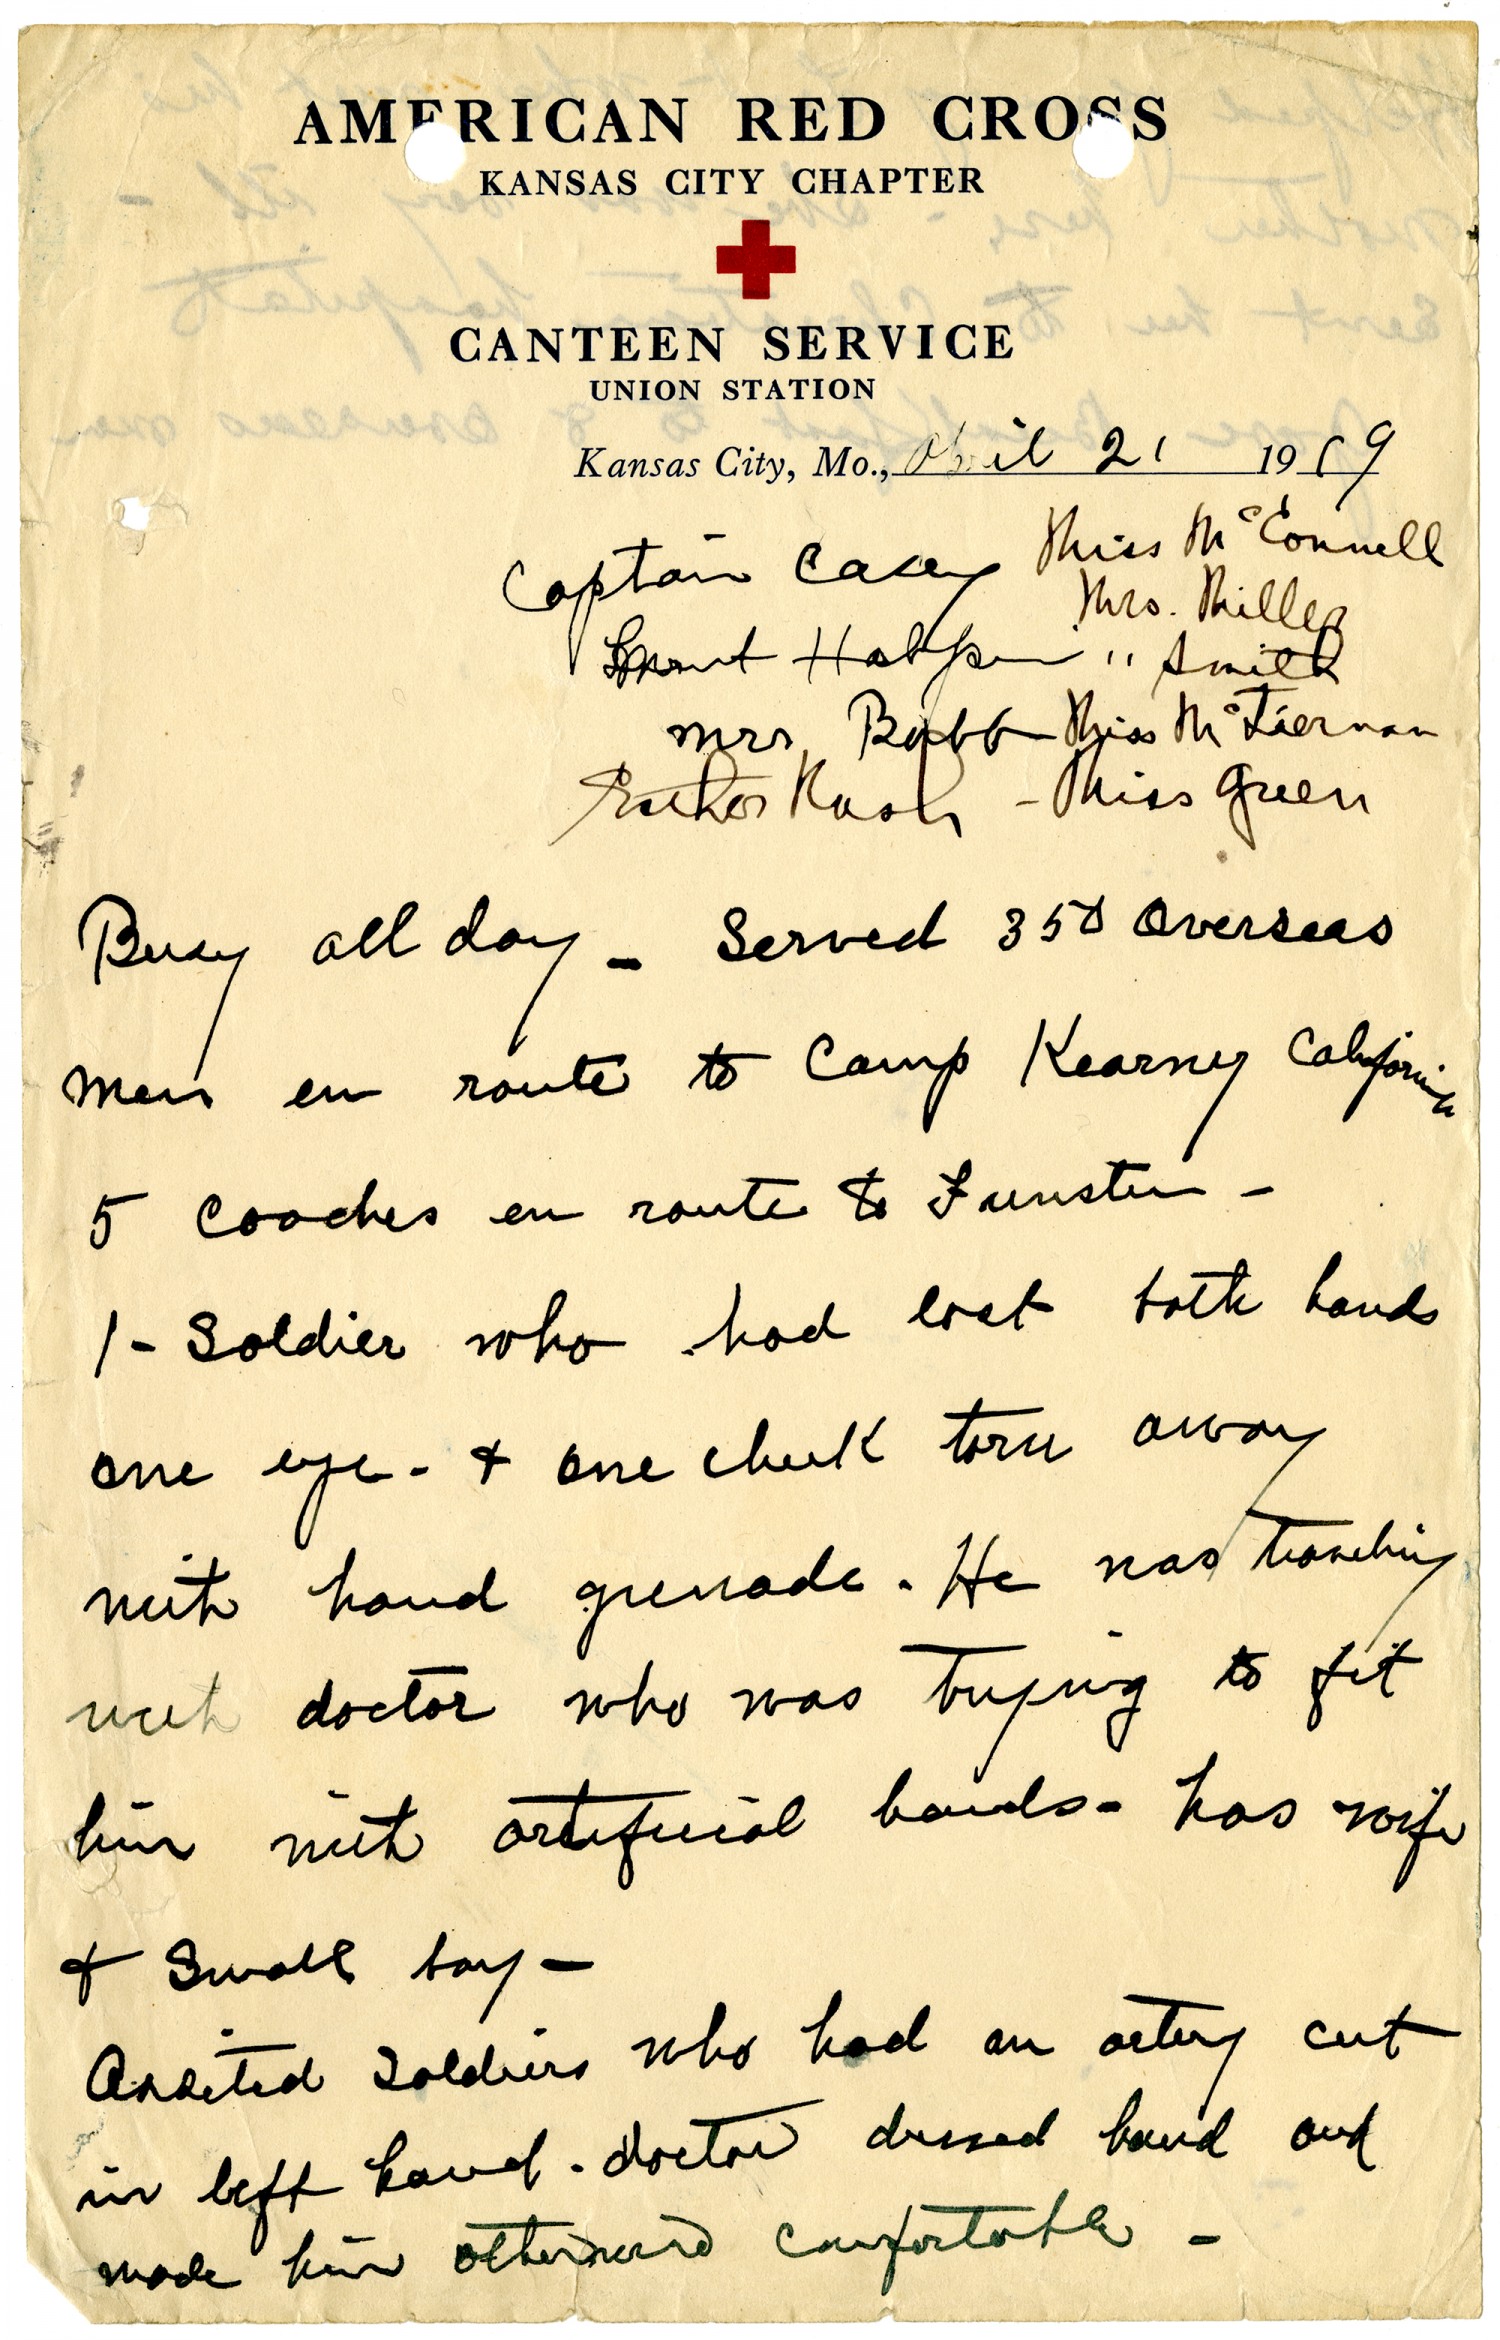 AMERICAN RED CROSS
KANSAS CITY CHAPTER
CANTEEN SERVICE
UNION STATION
Kansas City, Mo., April 21 1919
Captain Casey Miss McConnell
Mrs. Miller
Halpin " Smith
Mrs. Miss McTiernan
Esther Nash - Miss Green
Busy all day - Served 350 Overseas
men en route to Camp Kearney California
5 Coaches en route to Funston -
1 - Soldier who had lost both hands
one eye - & one cheek torn away
with hand grenade. He was traveling
with doctor who was trying to fit
him with artificial hands - has wife
& Small boy -
Assisted Soldiers who had an artery cut
in left hand. doctor dressed hand and
made him comfortable -